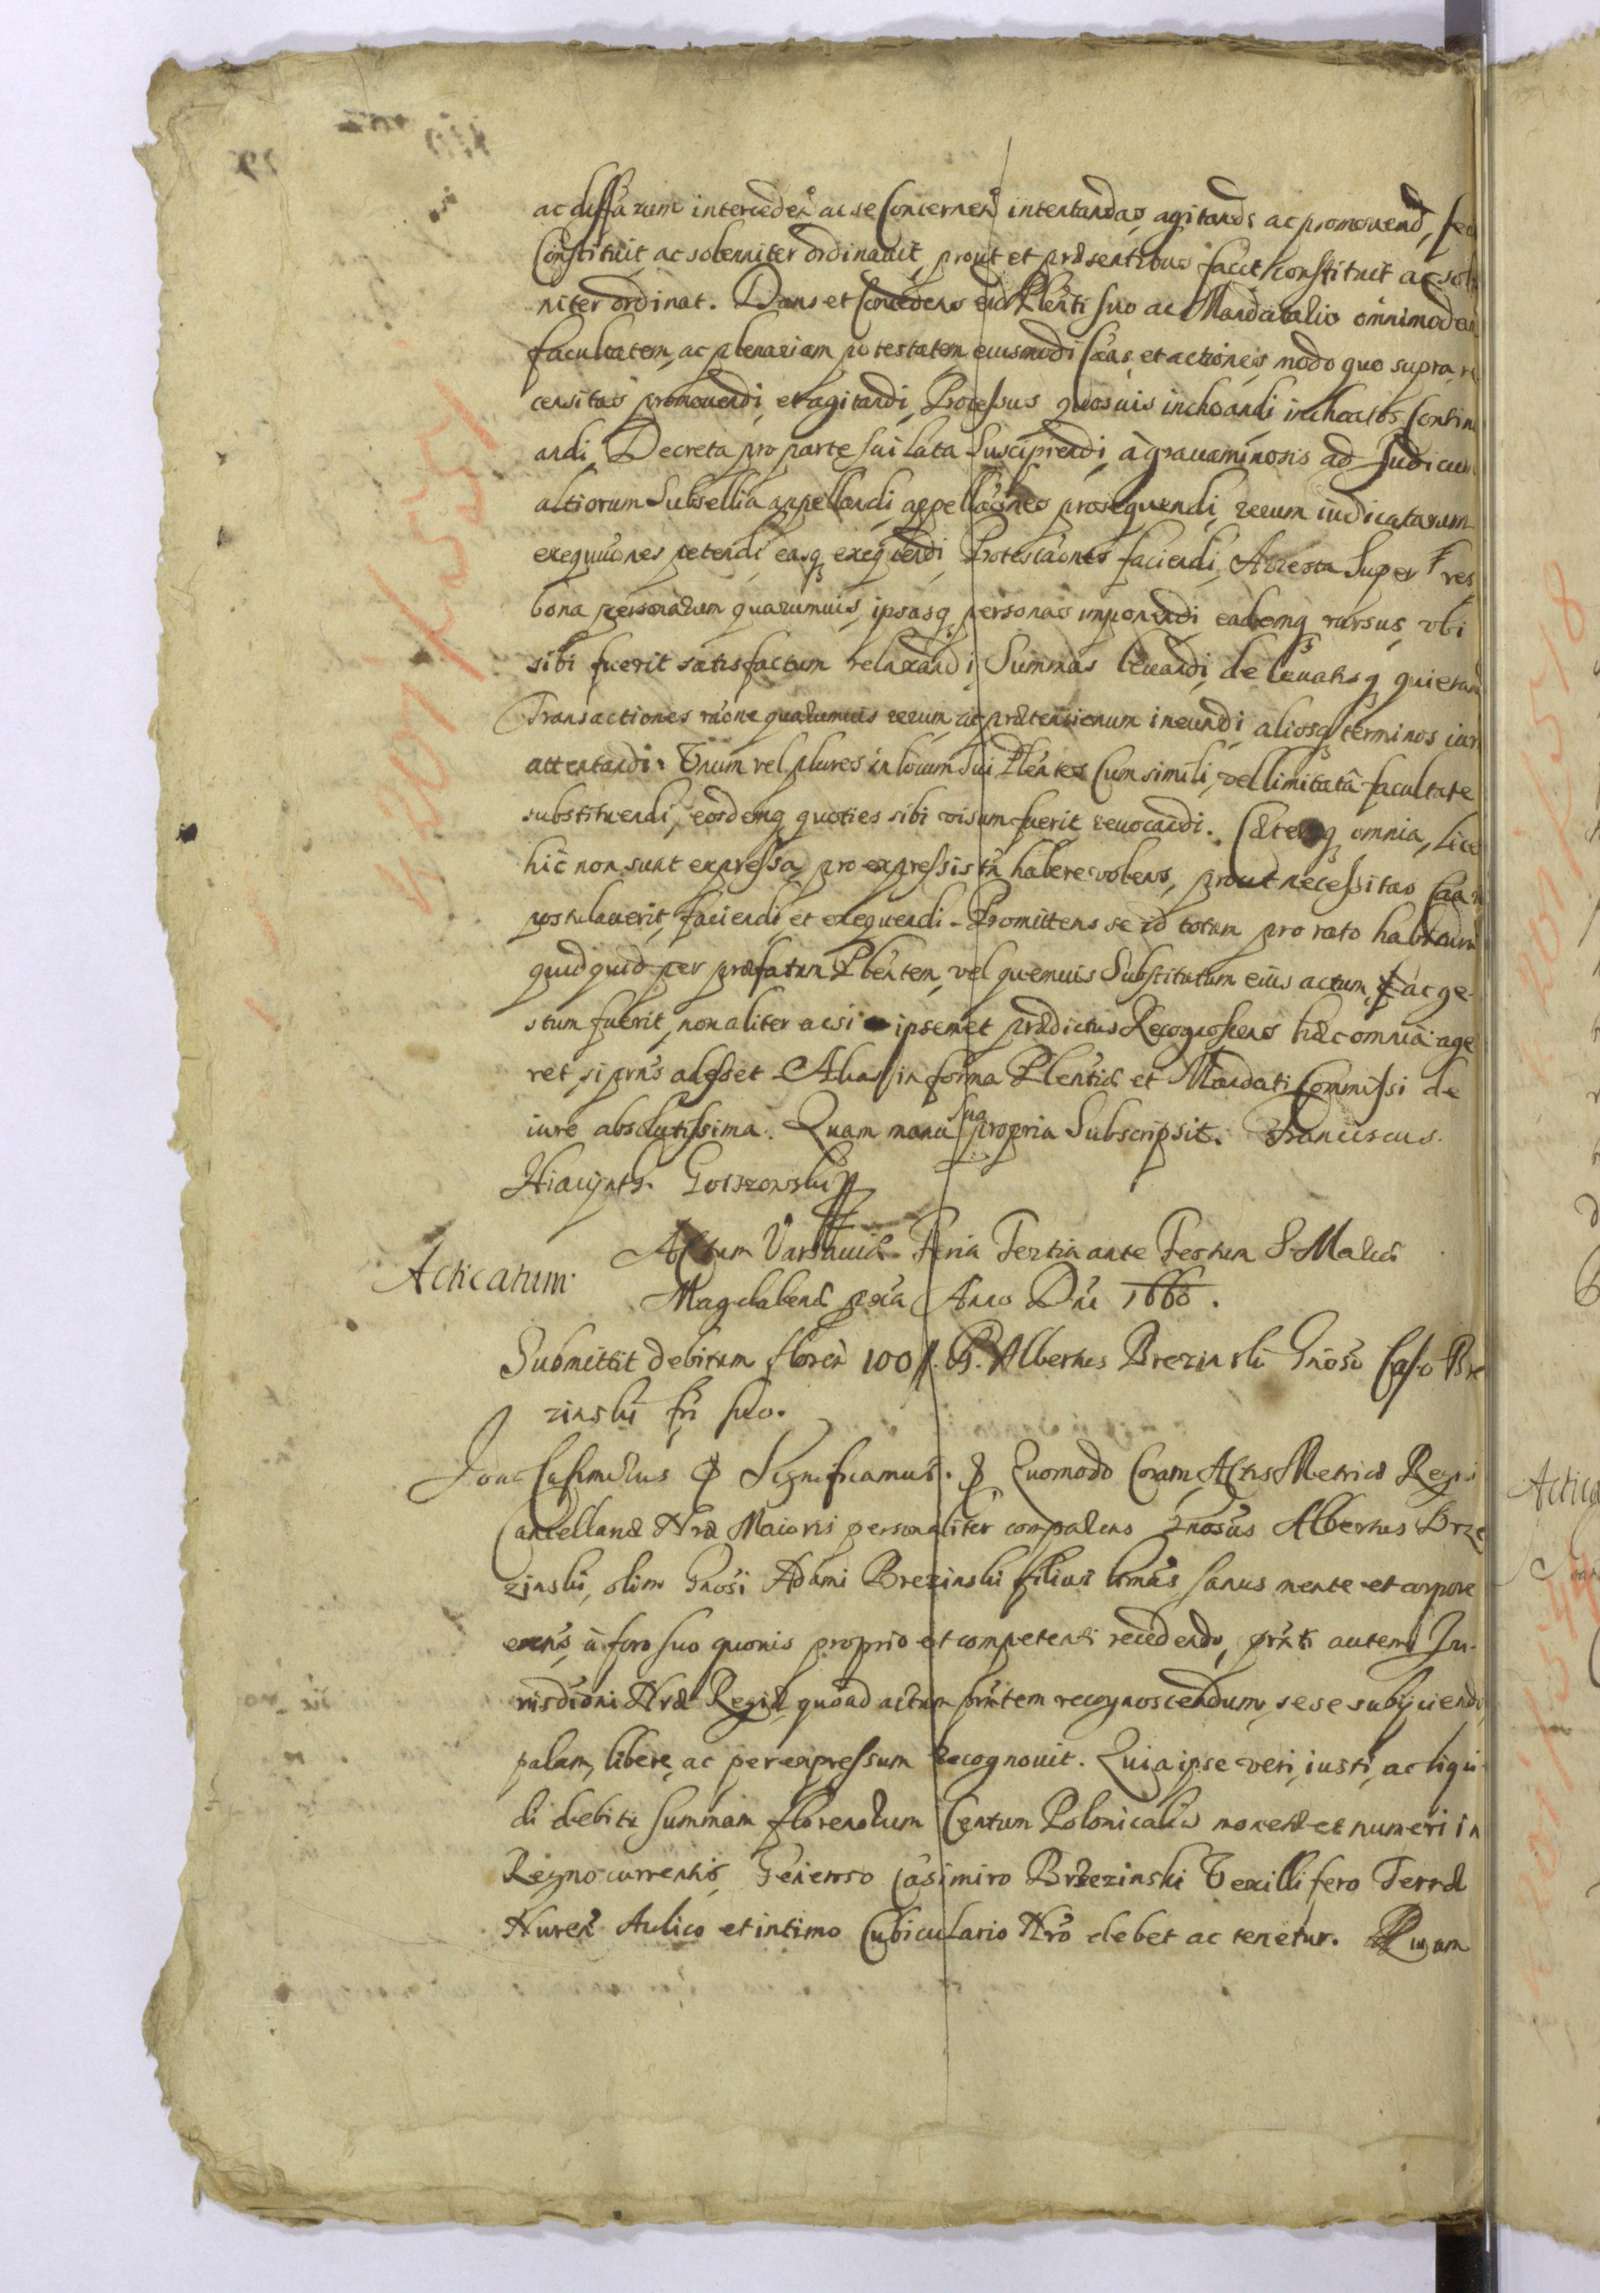 ac diffarum interceden ac se Concernen intentandas, agitands ac promovend, fecit
Constituit ac solemniter ordinavit, prout et præsentibus facit constituit ac sole
niter ordinat. Dans et Concedens eid Plenti suo ac Mandatario omnimodam
facultatem, ac plenariam potestatem eiusmodi Cãas, et actiones, modo quo supra re
censitas promouendi, et agitandi, Processus quosuis inchoandi inchoatos Contin
andi, Decreta pro parte sui lata Suscipiendi, à grauaminosis ad Judicum
altiorum Subsellia appellandi, appellãones prosequendi, rerum iudicatarum
exequũones petendi, easq exequendi, Protestãones faciendi, Arresta Super res
bona personarum quarumuis, ipsasq personas imponendi, eademq rursus, vbi
sibi fuerit satisfactum relaxandi, Summas leuandi, de leuatisq quietand
Transactiones rãone quarumuis rerum ac prætensionum ineundi, aliosq terminos iur
attentandi. Vnum vel plures in locum sui Plentes Cum simili, vel limitatâ facultate
substituendi, eosdemq quoties sibi visum fuerit reuocandi. Cæteraq omnia, licet
hîc non sunt expressa, pro expressis tñ habere volens, prout necessitas Cãar
postulauerit, faciendi, et exequendi. Promittens se id totum pro rato habiturum
quidquid per præfatum Plentem, vel quemuis Substitutum eius actum, ac ge-
stum fuerit, non aliter acsi ipsemet prædictus Recognoscens hæc omnia age
ret, si prñs adesset. Alias in forma Plentiæ et Mandati Commissi de
iure absolutissima. Quam manu sua propria Subscripsit. Franciscus
Hiacynth. Goszowskij
Acticatum
Actum Varsauiæ Feria Tertia ante Festum S. Mariæ
Magdalenæ pxa Anno Dñi 1660.
Submittit debitum floren 100 G. Albertus Brezinski Gnoso Caso Bre
zinski fri suo.
Joan Casimirus Significamus. Quomodo Coram Actis Metricæ Regni
Cancellariæ Nræ Maioris personaliter comparens Gnosus Albertus Brze
zinski, olim Gnosi Adami Brezinski filius ltmus sanus mente et corpore
exens, à foro suo quouis proprio et competenti recedendo, prñti autem Ju-
risdioni Nræ Regiæ, quoad actum prñtem recognoscendum, sese subijciendo
palam, libere, ac per expressum recognouit. Quia ipse veri, iusti, ac liqui-
di debiti summam florenorum Centum Polonicaliu monetæ et numeri in
Regno currentis, Generoso Casimiro Brzezinski Vexillifero Terræ
Nuren Aulico et intimo Cubiculario Nro debet ac tenetur. Quam